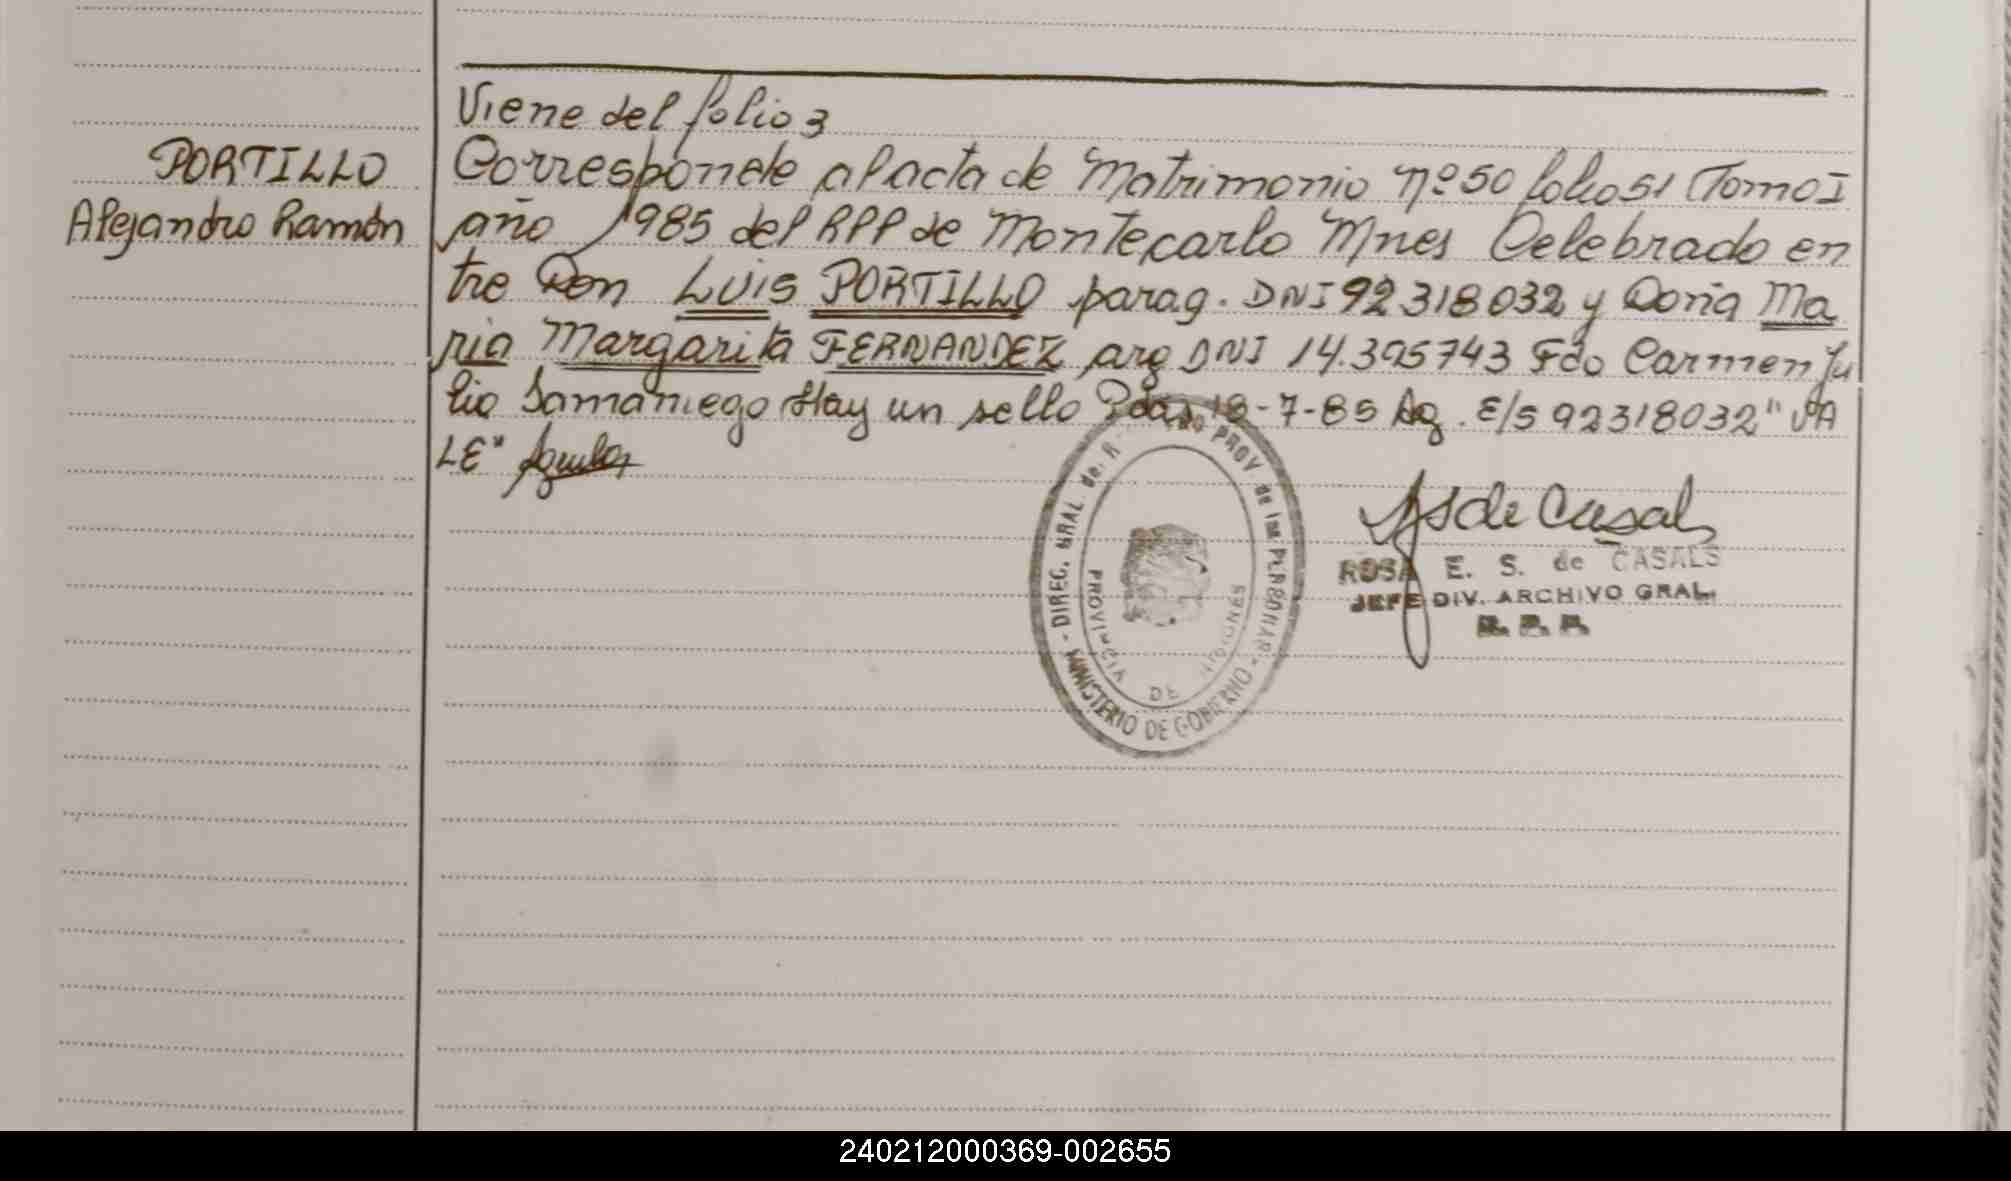 Viene del folio 3
PORTILLO
Alejandro Ramón
Corresponde al acta de Matrimonio nº 50 folio 51 Tomo I
año 1985 del RPP de Montecarlo Mnes Celebrado en
tre Don LUIS PORTILLO parag. DNI 92318032 y Doña Ma
ria Margarita FERNANDEZ arg DNI 14.395743 Fdo Carmen Ju
lio Samaniego Hay un sello Pdas 18-7-85 Ag. E/S 92318032" VA
LE" Aguilar
DIREC. GRAL de. R PROV de las PERSONAS
MINISTERIO DE GOBIERNO
PROVINCIA DE MISIONES
S de Casals
ROSA E. S. de CASALS
JEFE DIV. ARCHIVO GRAL.
R. P. P.
240212000369-002655